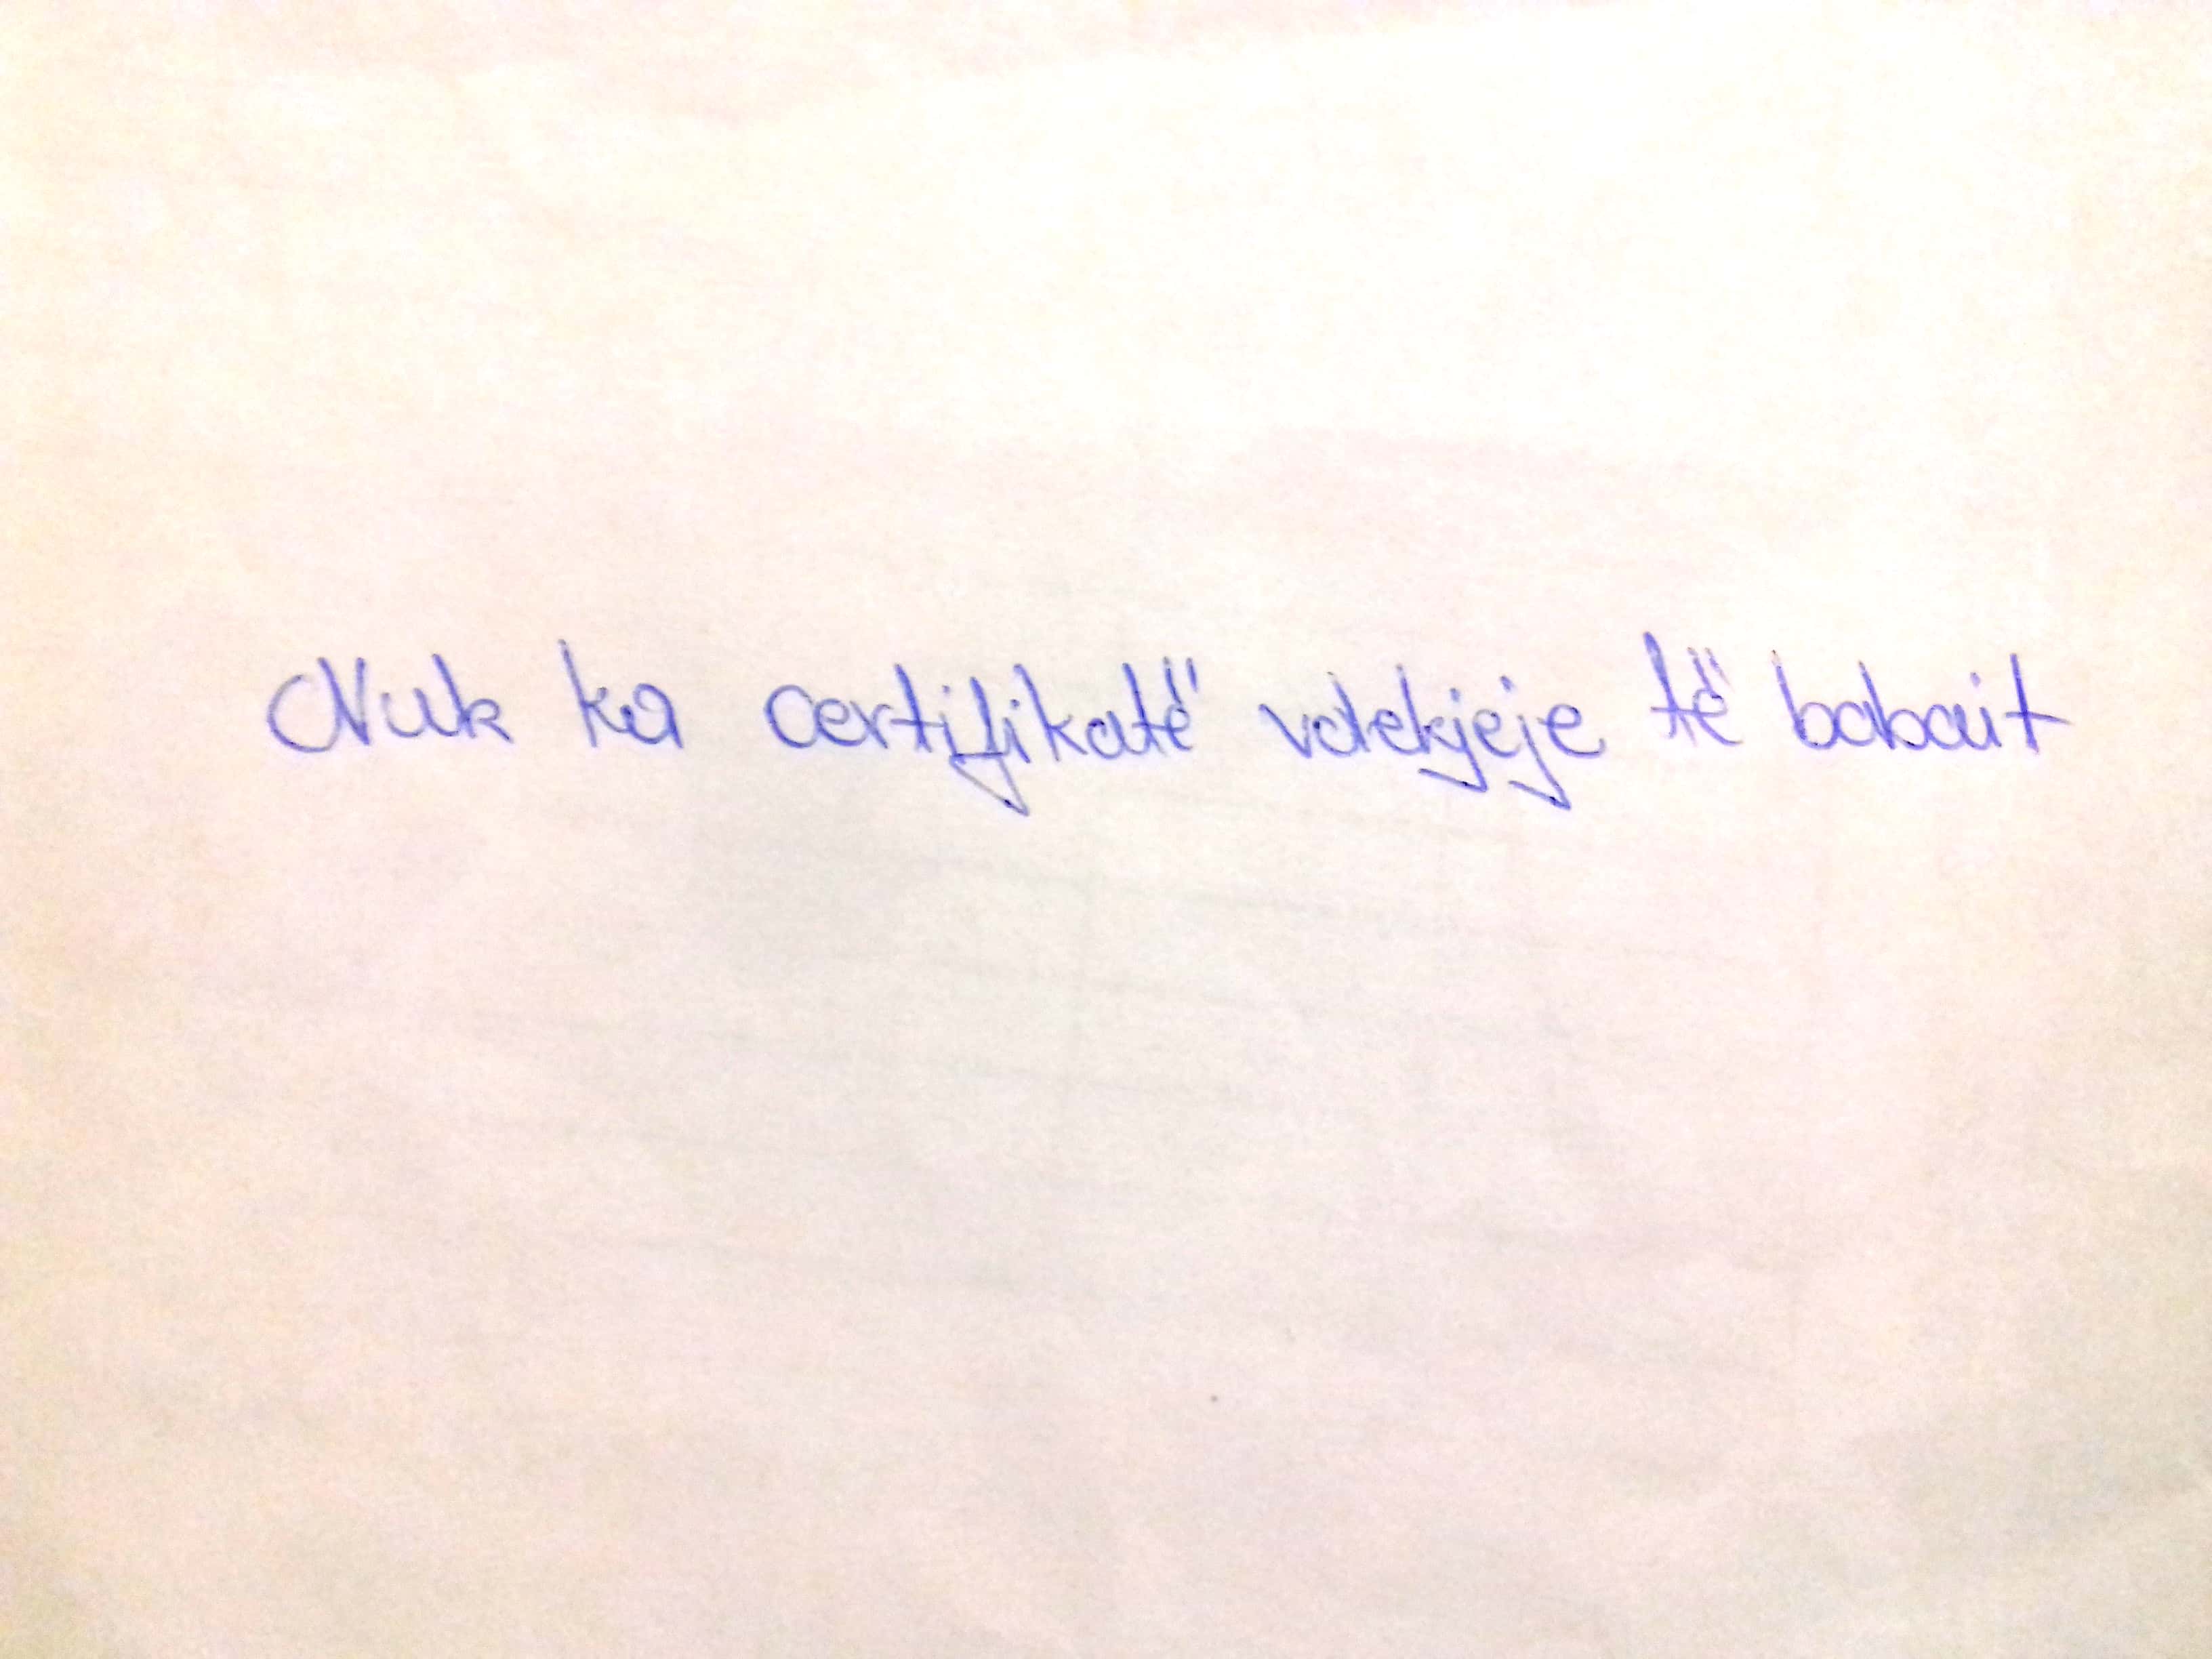 Nuk ka certifikatë vdekjeje të babait